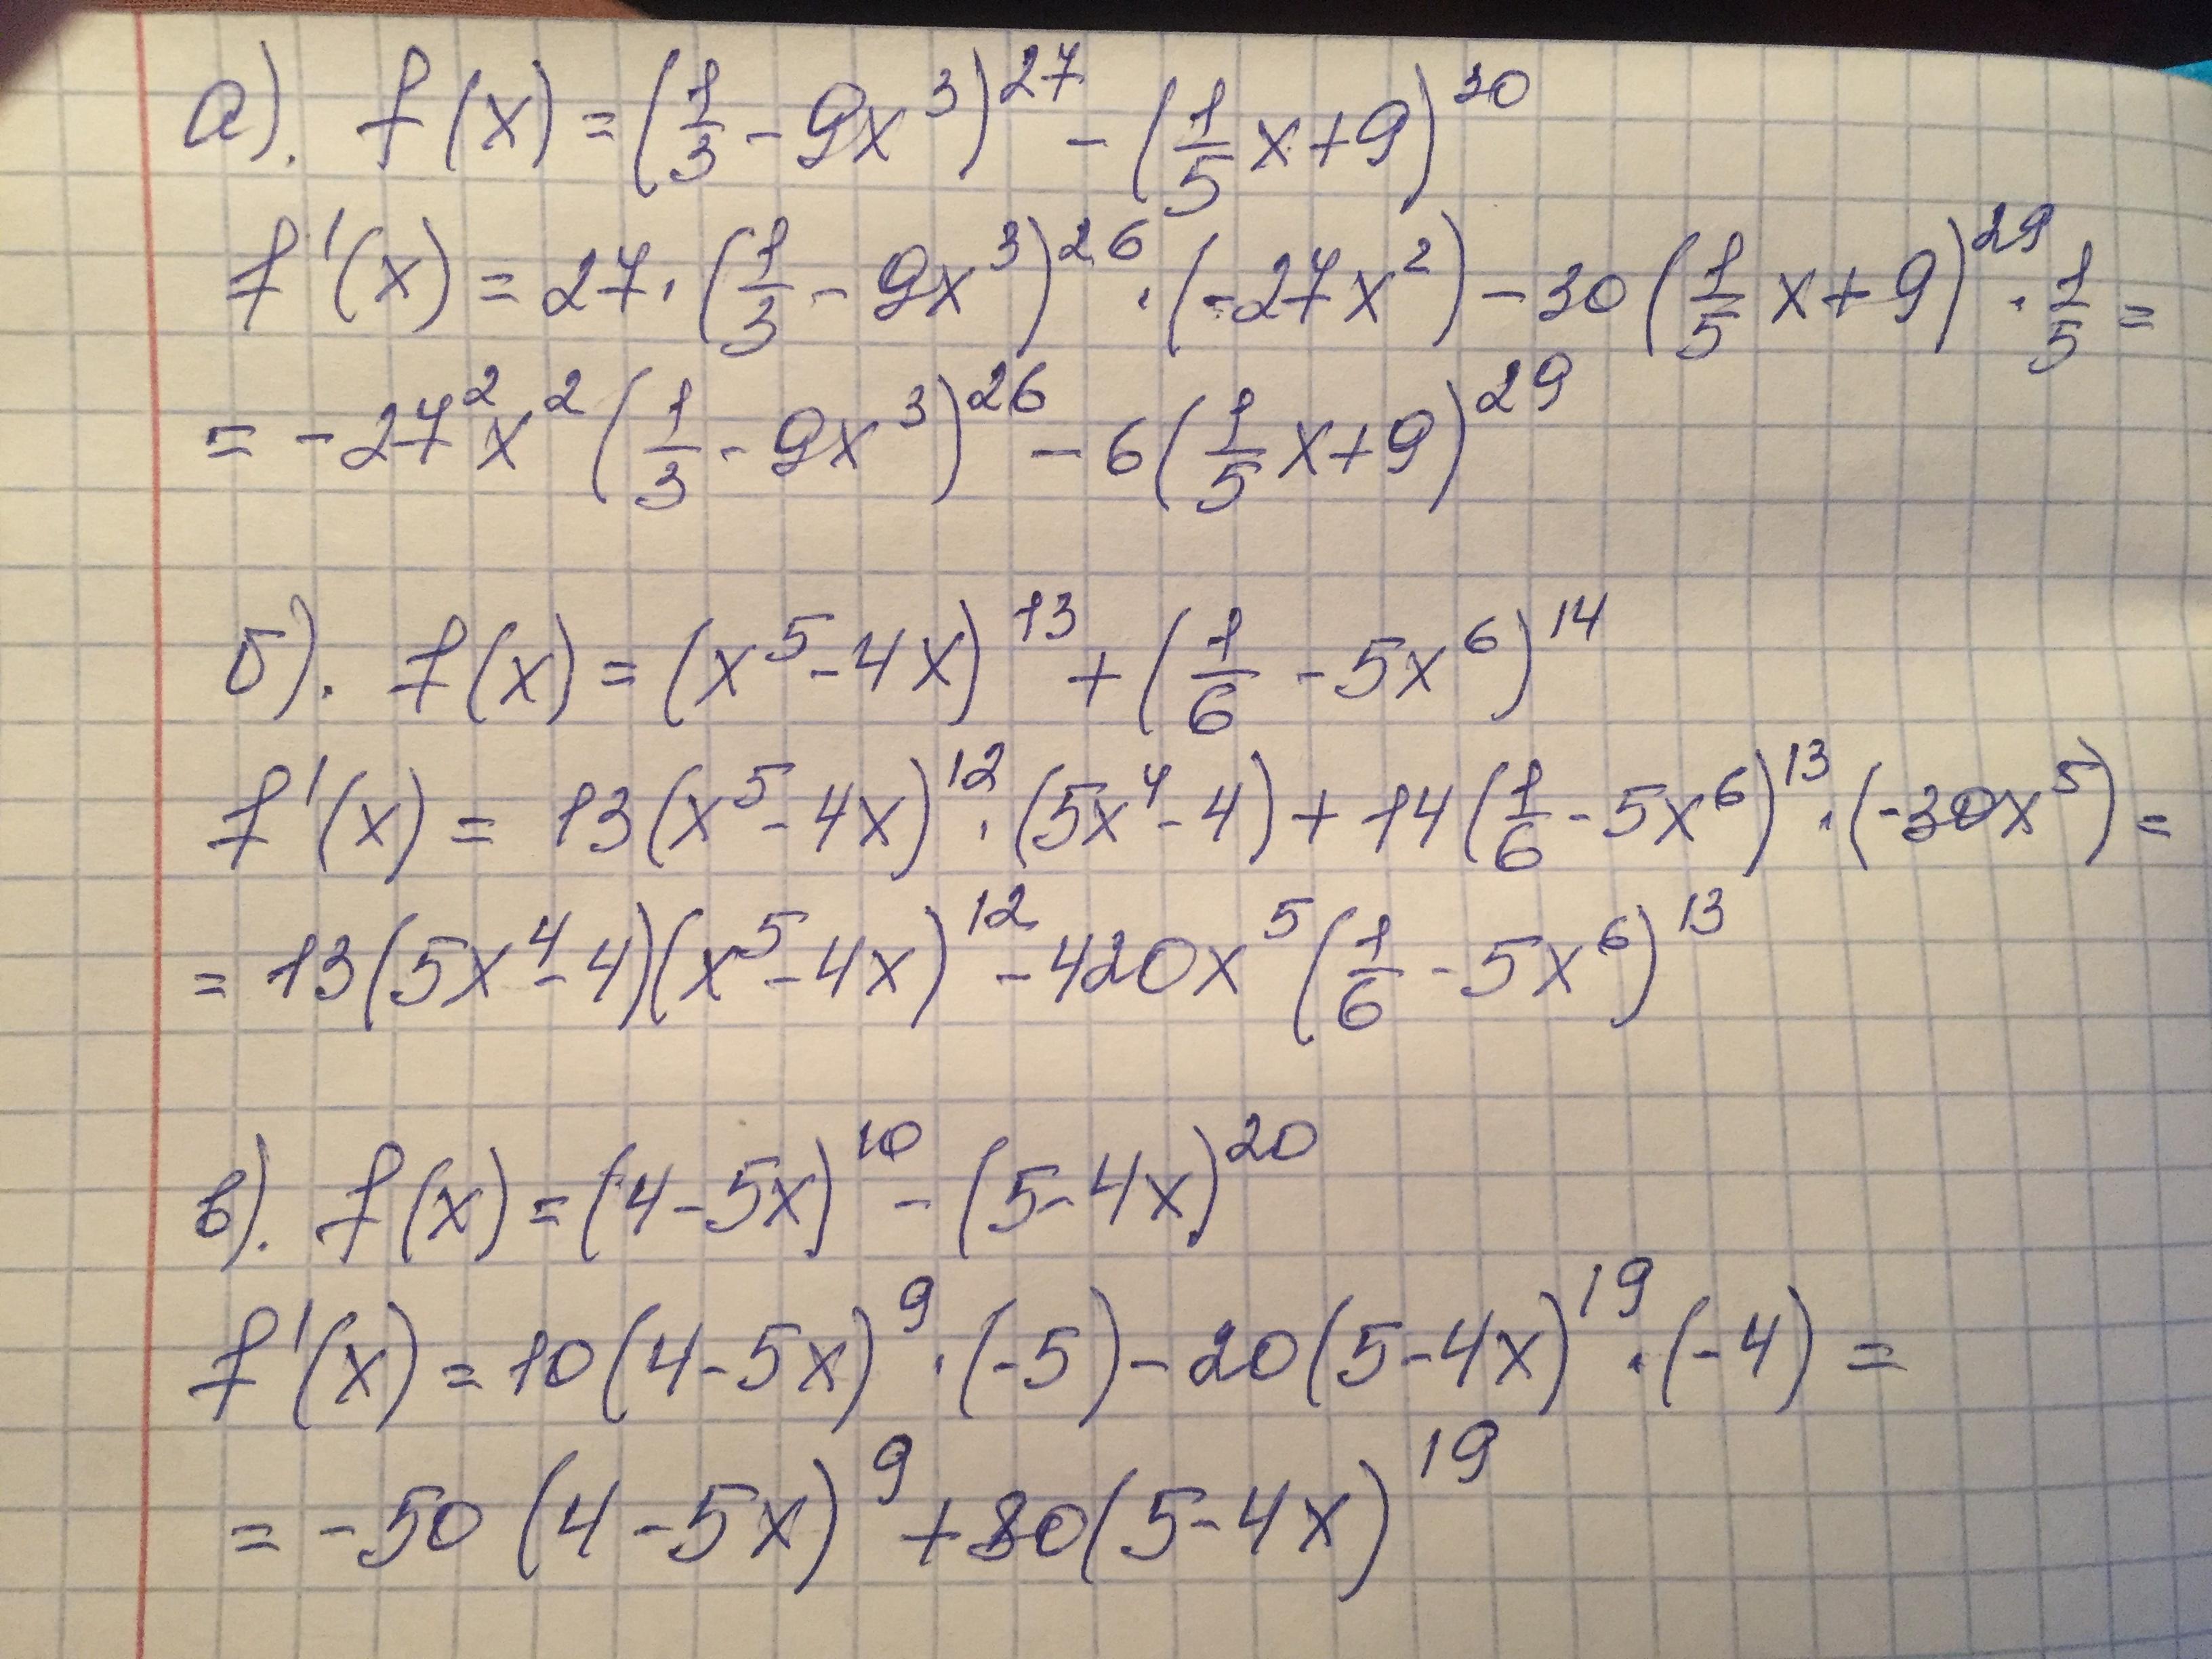 а). f(x) = (1/3 - 9x^3)^27 - (1/5 x + 9)^30
f'(x) = 27 · (1/3 - 9x^3)^26 · (-27x^2) - 30(1/5 x + 9)^29 · 1/5 =
= -27^2 x^2 (1/3 - 9x^3)^26 - 6(1/5 x + 9)^29
б). f(x) = (x^5 - 4x)^13 + (1/6 - 5x^6)^14
f'(x) = 13(x^5 - 4x)^12 · (5x^4 - 4) + 14(1/6 - 5x^6)^13 · (-30x^5) =
= 13(5x^4 - 4)(x^5 - 4x)^12 - 420x^5 (1/6 - 5x^6)^13
в). f(x) = (4 - 5x)^10 - (5 - 4x)^20
f'(x) = 10(4 - 5x)^9 · (-5) - 20(5 - 4x)^19 · (-4) =
= -50 (4 - 5x)^9 + 80(5 - 4x)^19